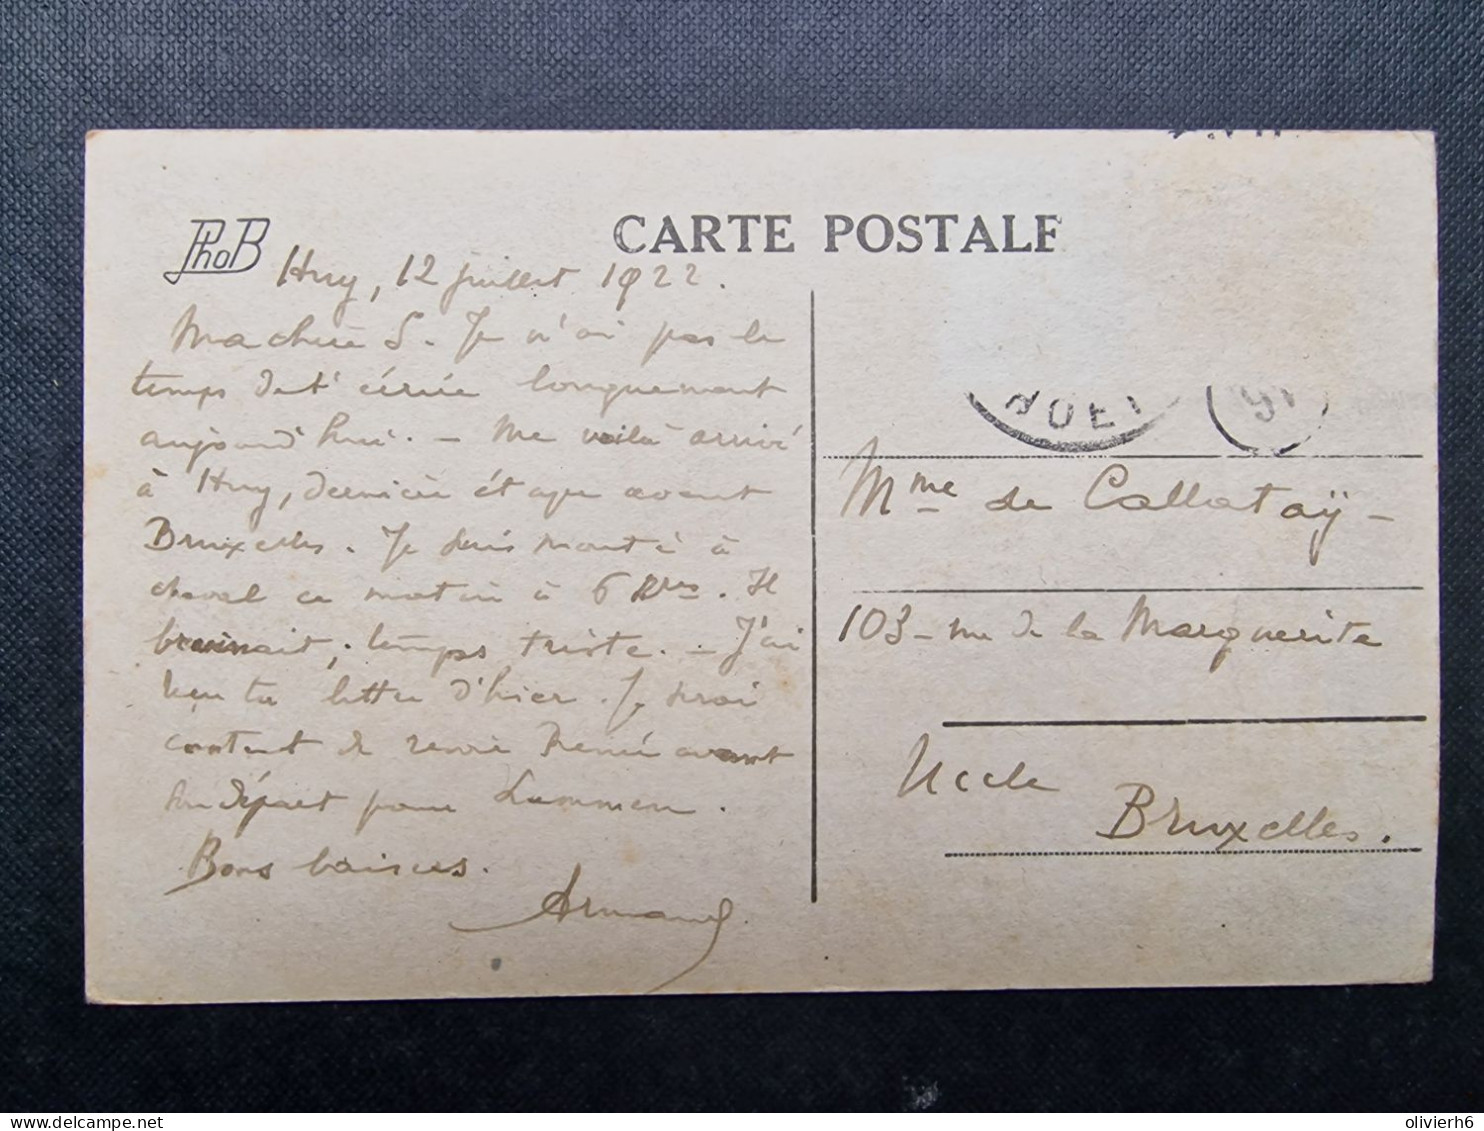 PhoB
CARTE POSTALE
Huy, 12 juillet 1922.
Ma chère S. Je n'ai pas le
temps de t'écrire longuement
aujourd'hui. – Me voilà arrivé
à Huy, dernière étape avant
Bruxelles. Je suis monté à
cheval ce matin à 6 hrs. Il
bruinait, temps triste. – J'ai
reçu ta lettre d'hier. Je serai
content de revoir René avant
son départ pour Lummen.
Bons baisers.
Armand
HUY
Mme de Callataÿ –
103 – rue de la Marguerite
Uccle
Bruxelles.
olivierh6